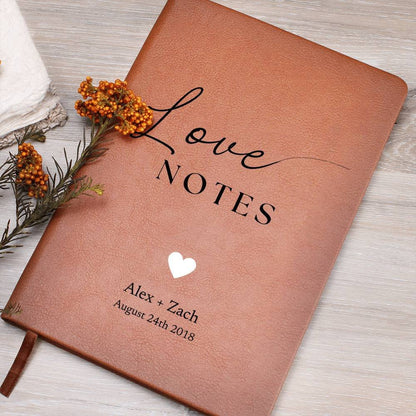 Love
NOTES
Alex + Zach
August 24th 2018